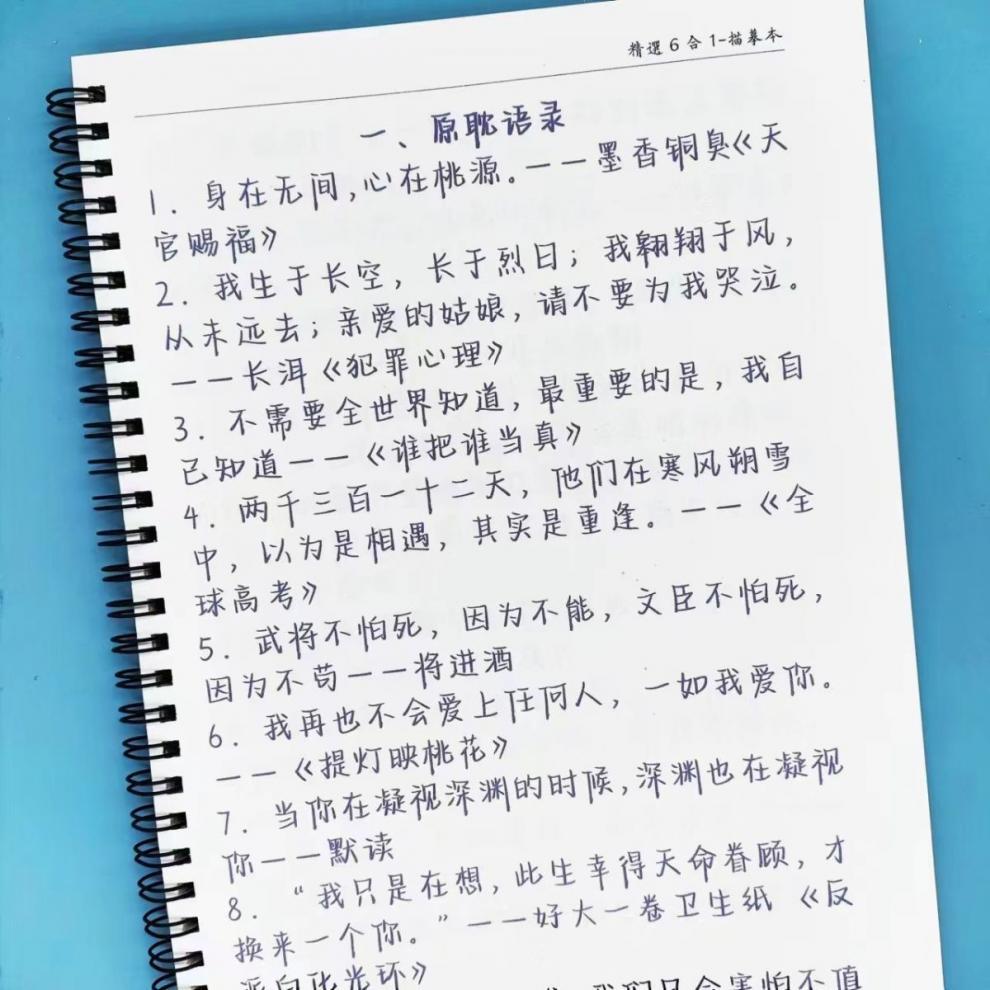 精選6合1-描摹本
一、原耽语录
1. 身在无间,心在桃源。——墨香铜臭《天
官赐福》
2. 我生于长空，长于烈日；我翱翔于风，
从未远去；亲爱的姑娘，请不要为我哭泣。
——长洱《犯罪心理》
3. 不需要全世界知道，最重要的是，我自
己知道——《谁把谁当真》
4. 两千三百一十二天，他们在寒风朔雪
中，以为是相遇，其实是重逢。——《全
球高考》
5. 武将不怕死，因为不能，文臣不怕死，
因为不苟——将进酒
6. 我再也不会爱上任何人，一如我爱你。
——《提灯映桃花》
7. 当你在凝视深渊的时候,深渊也在凝视
你——默读
8. “我只是在想，此生幸得天命眷顾，才
换来一个你。”——好大一卷卫生纸《反
派自化光环》
我们只会害怕不值